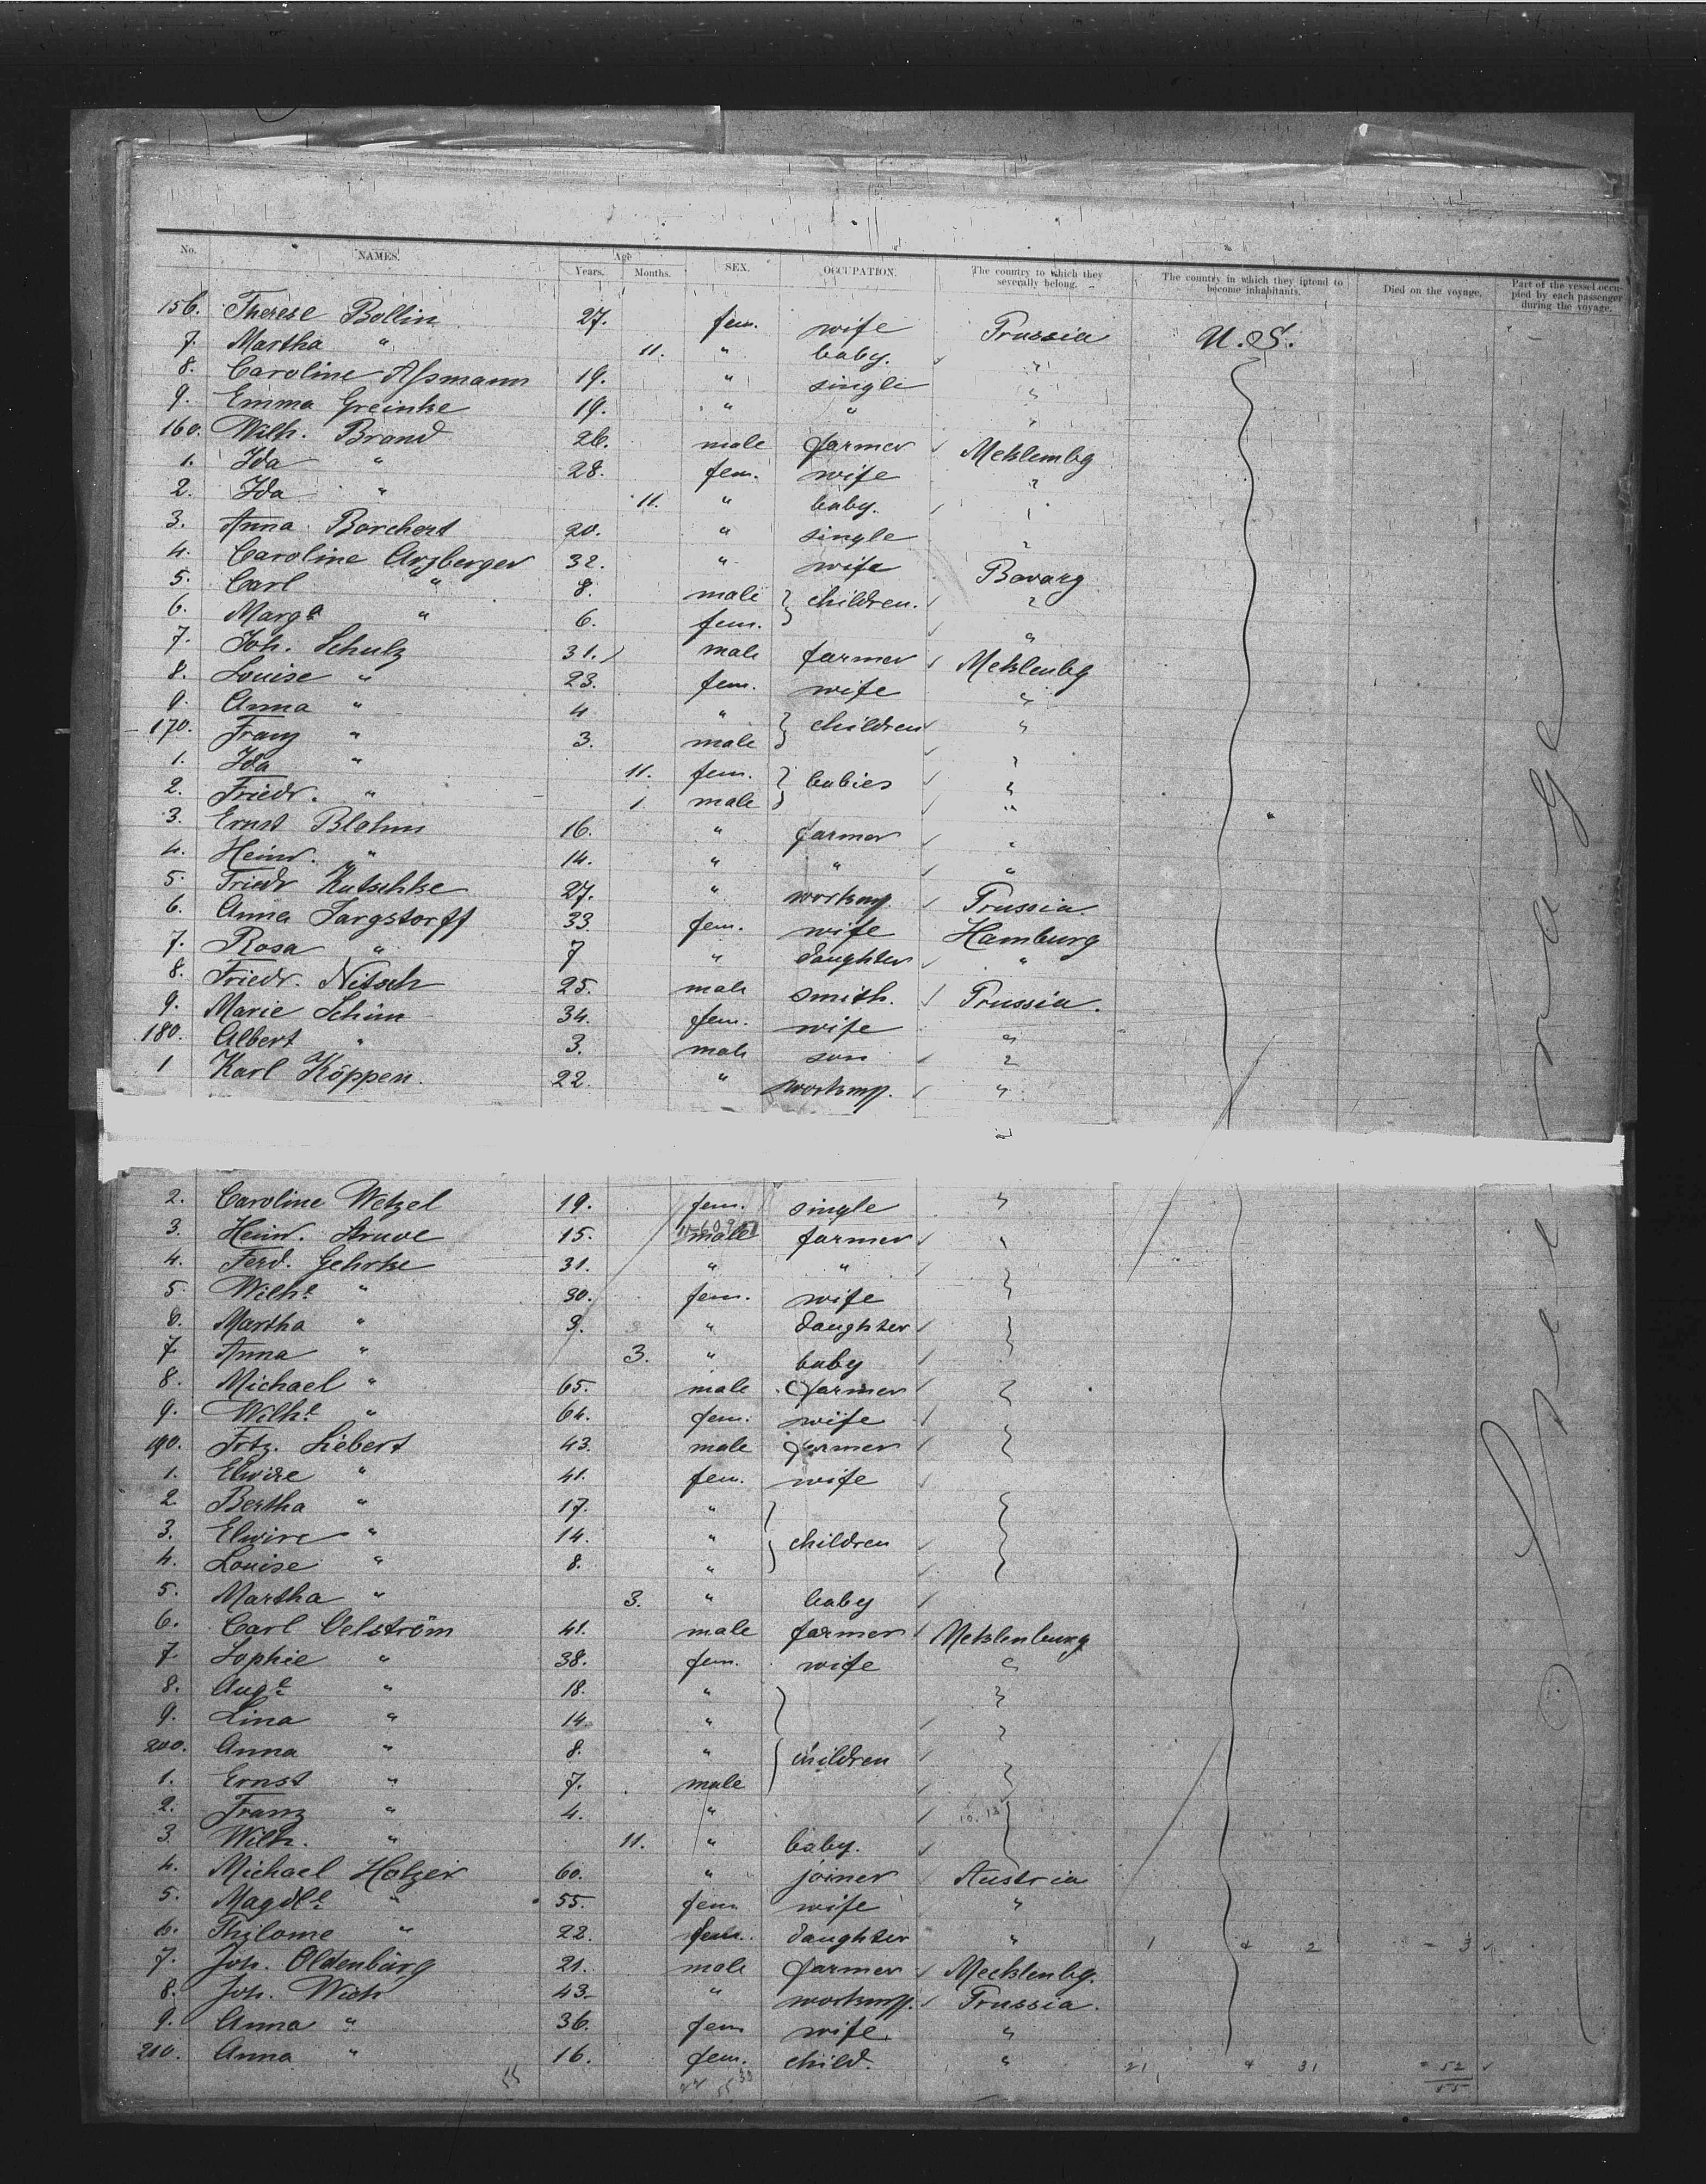 No. NAMES. Age Years. Months. SEX. OCCUPATION. The country to which they severally belong. The country in which they intend to become inhabitants. Died on the voyage. Part of the vessel occupied by each passenger during the voyage.
156. Therese Bollin 27. fem. wife Prussia U.S.
7. Martha " 11. " baby. "
8. Caroline Aßmann 19. " single "
9. Emma Greinke 19. " " "
160. Wilh. Brand 26. male farmer Meklembg
1. Ida " 28. fem. wife "
2. Ida " 11. " baby. "
3. Anna Borchert 20. " single "
4. Caroline Arzberger 32. " wife Bavarg
5. Carl " 8. male } children. "
6. Marga " 6. fem. "
7. Joh. Schulz 31. male farmer Meklenbg
8. Louise " 23. fem. wife "
9. Anna " 4 " } children "
170. Franz " 3. male "
1. Ida " 11. fem. } babies "
2. Friedr. " 1. male "
3. Ernst Blohm 16. " farmer "
4. Heinr. " 14. " " "
5. Friedr Kutschke 27. " workmg. Prussia.
6. Anna Sargstorff 33. fem. wife Hamburg
7. Rosa " 7 " daughter "
8. Friedr. Nitsch 25. male smith. Prussia.
9. Marie Schün 34. fem. wife "
180. Albert " 3. male son "
1 Karl Köppen. 22. " workmg. "
2. Caroline Wetzel 19. fem. single "
3. Heinr. Struve 15. male farmer "
4. Ferd. Gehrke 31. " "
5. Wilhe " 30. fem. wife
6. Martha " 9. " daughter
7. Anna " 3. " baby
8. Michael " 65. male farmer
9. Wilhe " 64. fem. wife
190. Frtz. Liebert 43. male farmer
1. Elwire " 41. fem. wife
2 Bertha " 17. "
3. Elwire " 14. " } children
4. Louise " 8. "
5. Martha " 3. " baby
6. Carl Oelström 41. male farmer Meklenburg
7. Sophie " 38. fem. wife "
8. Auge " 18. " "
9. Lina " 14. " "
200. Anna " 8. " } children
1. Ernst " 7. male
2. Franz " 4. "
3. Wilh. " 11. " baby.
4. Michael Holzer 60. " joiner Austria
5. Magdle " 55. fem wife "
6. Philome " 22. fem. daughter " 1 4 2 - 3
7. Joh. Oldenburg 21. male farmer Mecklenbg.
8. Joh. Wich 43. " workmg. Prussia.
9. Anna " 36. fem wife. "
210. Anna " 16. fem. child. " 21 4 31 52
55
Steerage